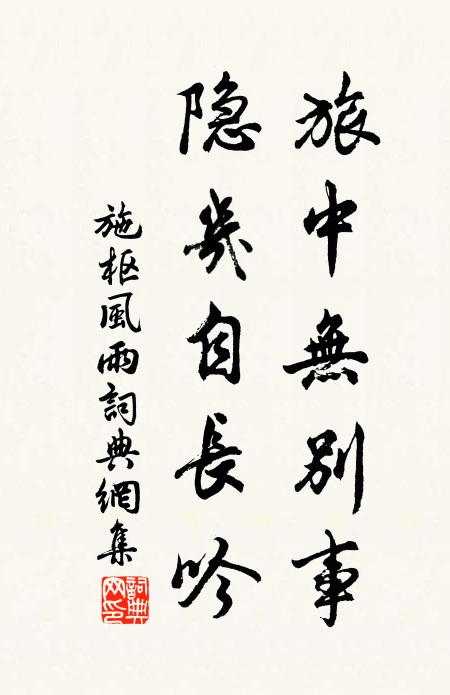 旅中無別事
隐幾自長吟
施枢風雨詞典網集
詞典网印